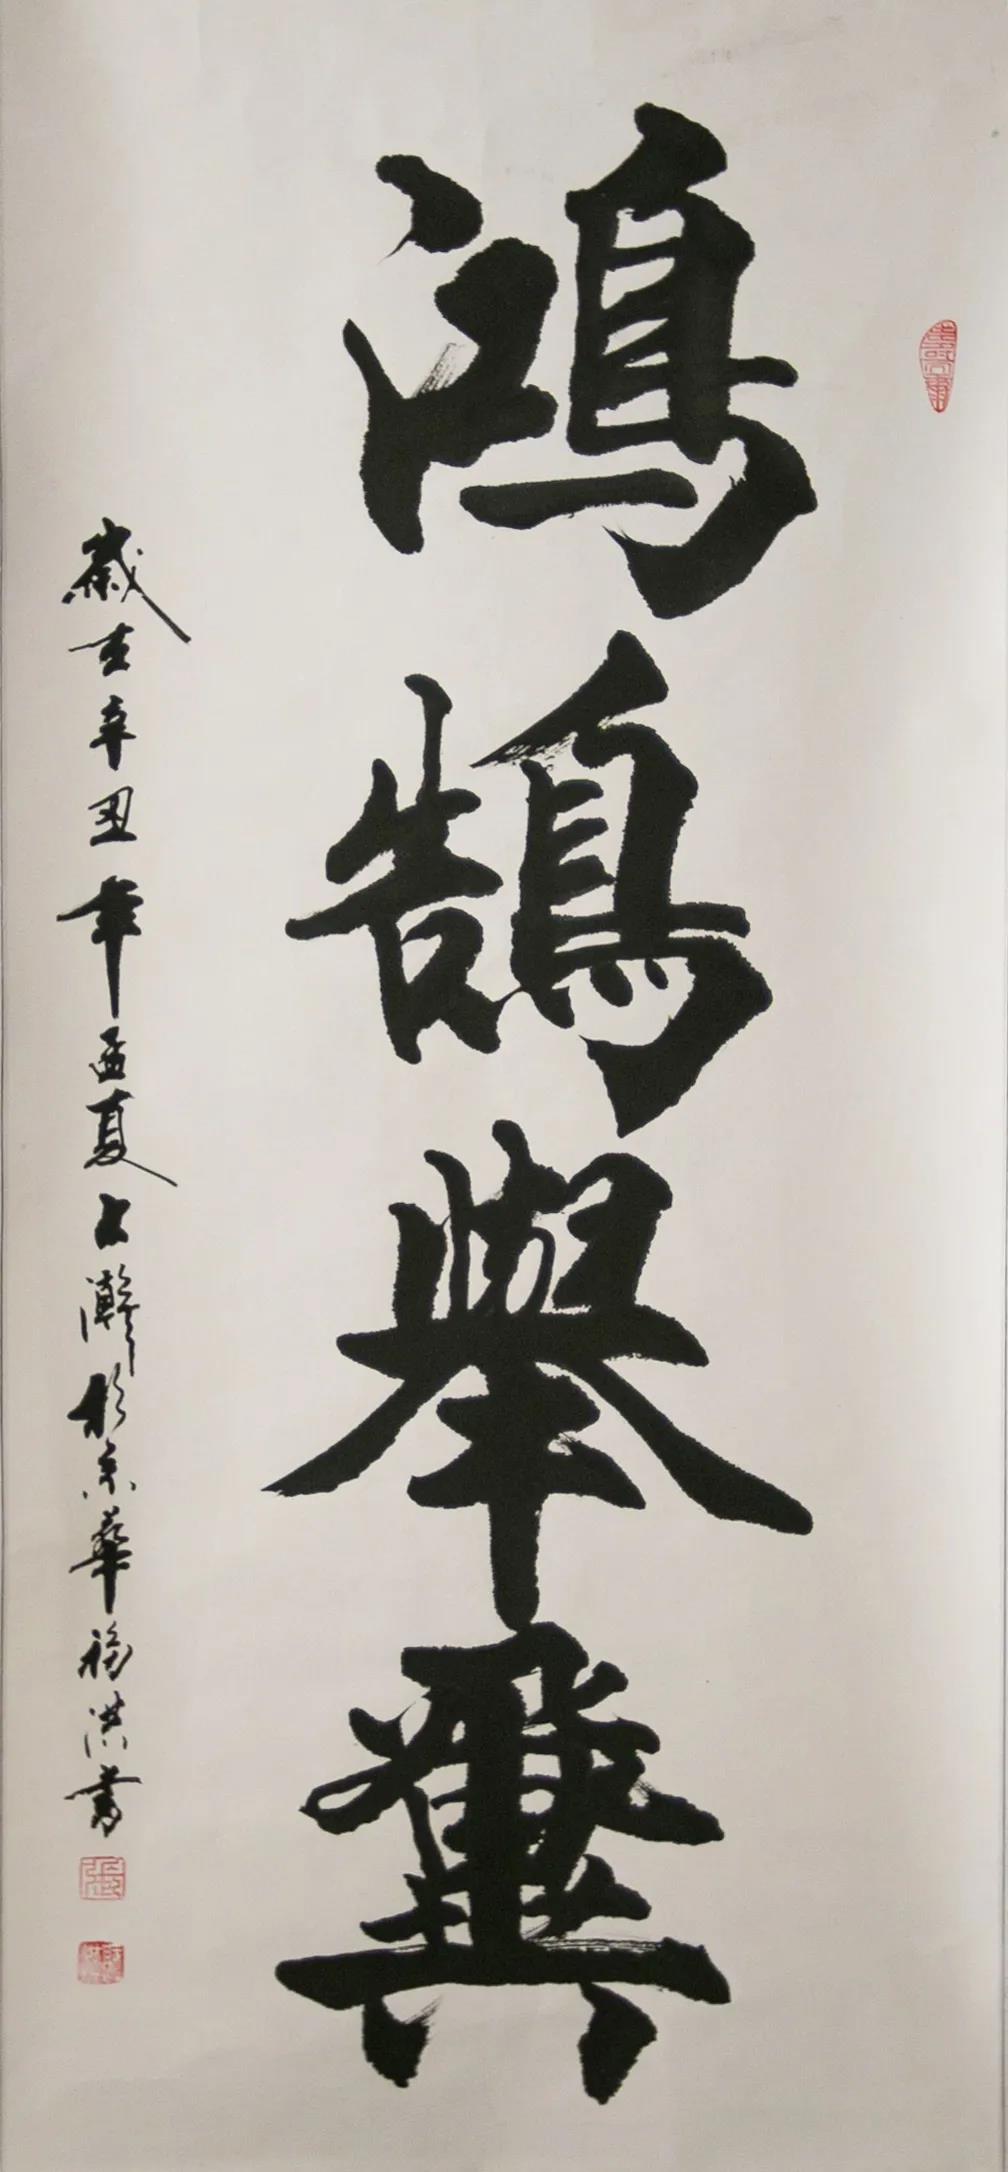 鴻鵠舉冀
歲在辛丑年孟夏上瀚於京華福洪書
張